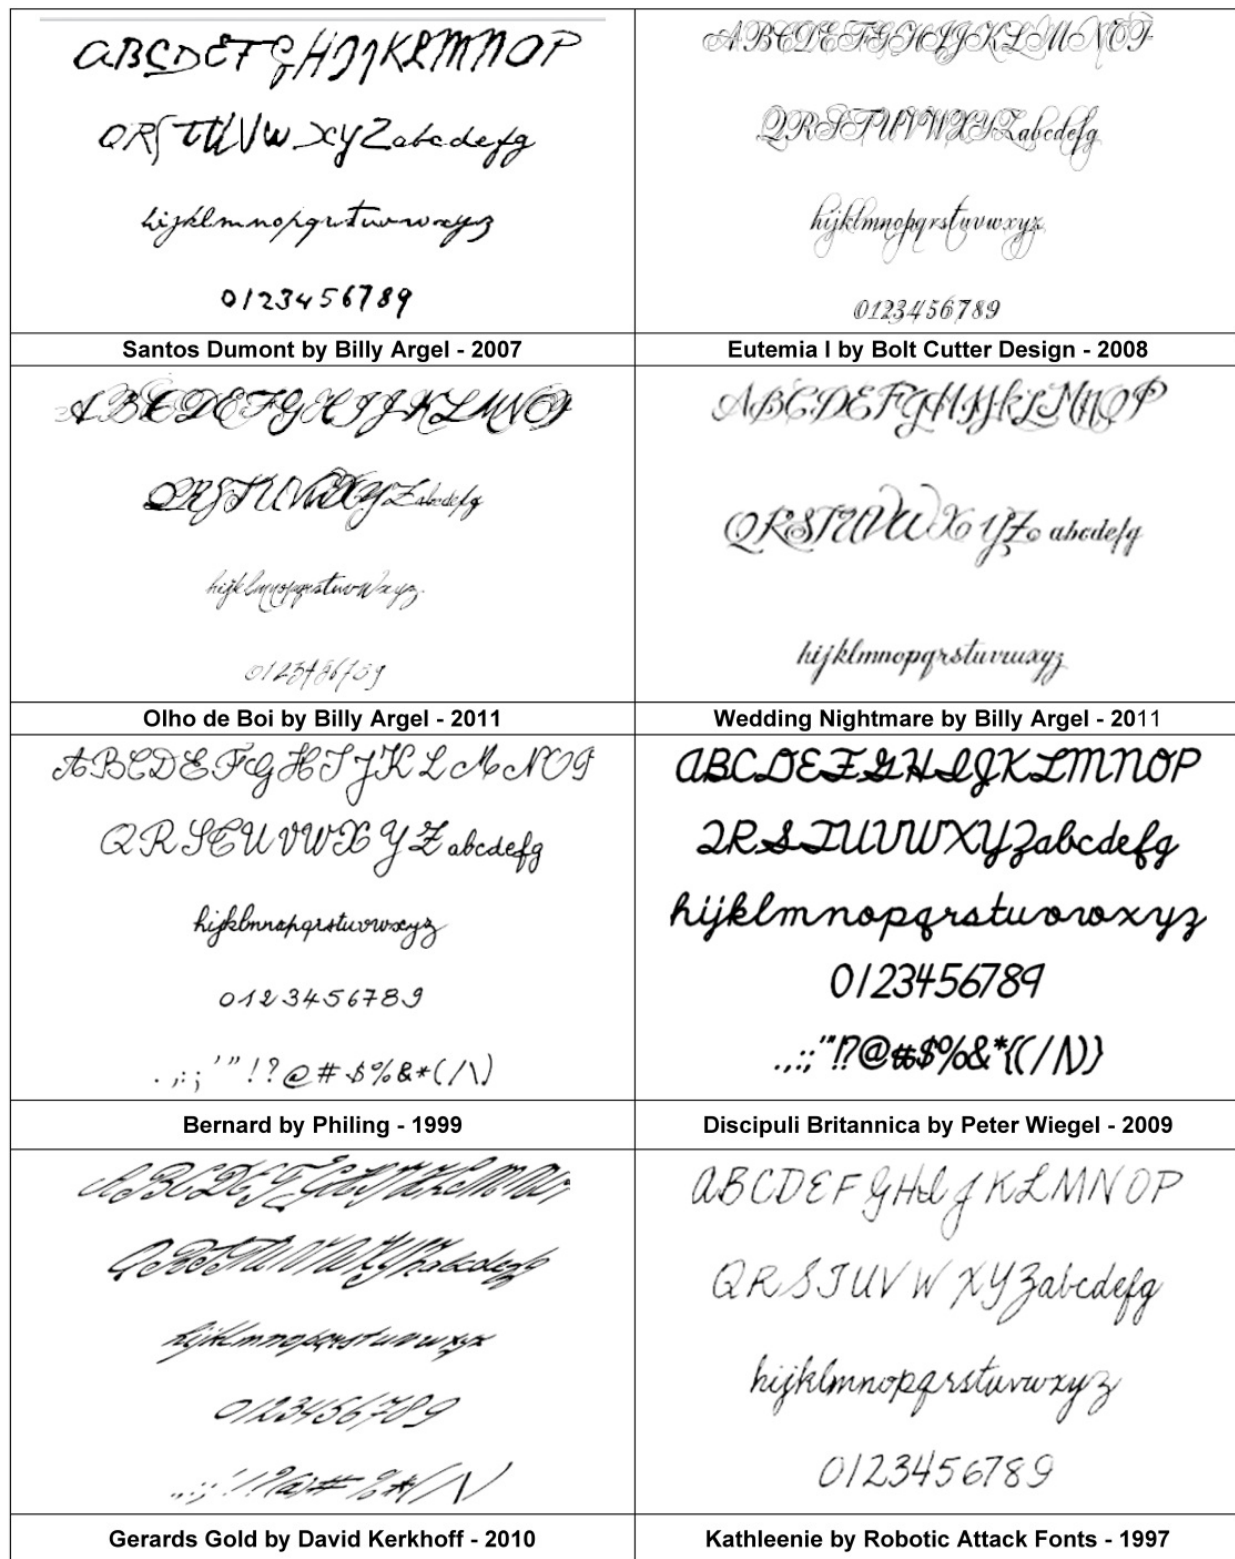 ABCDEFGHIJKLMNOP
QRSTUVWXYZabcdefg
hijklmnopqrstuvwxyz
0123456789
Santos Dumont by Billy Argel - 2007
ABCDEFGHIJKLMNOP
QRSTUVWXYZabcdefg
hijklmnopqrstuvwxyz
0123456789
Eutemia I by Bolt Cutter Design - 2008
ABCDEFGHIJKLMNOP
QRSTUVWXYZabcdefg
hijklmnopqrstuvwxyz
0123456789
Olho de Boi by Billy Argel - 2011
ABCDEFGHIJKLMNOP
QRSTUVWXYZ abcdefg
hijklmnopqrstuvwxyz
Wedding Nightmare by Billy Argel - 2011
ABCDEFGHIJKLMNOP
QRSTUVWXYZ abcdefg
hijklmnopqrstuvwxyz
0123456789
.,:;'"!?@#$%&*(/\)
Bernard by Philing - 1999
ABCDEFGHIJKLMNOP
QRSTUVWXYZabcdefg
hijklmnopqrstuvwxyz
0123456789
.,:;'"!?@#$%&*{(/|\)}
Discipuli Britannica by Peter Wiegel - 2009
ABCDEFGHIJKLMNOP
QRSTUVWXYZabcdefg
hijklmnopqrstuvwxyz
0123456789
.,:;'!?@# %*(/\)
Gerards Gold by David Kerkhoff - 2010
ABCDEFGHIJKLMNOP
QRSTUVWXYZabcdefg
hijklmnopqrstuvwxyz
0123456789
Kathleenie by Robotic Attack Fonts - 1997